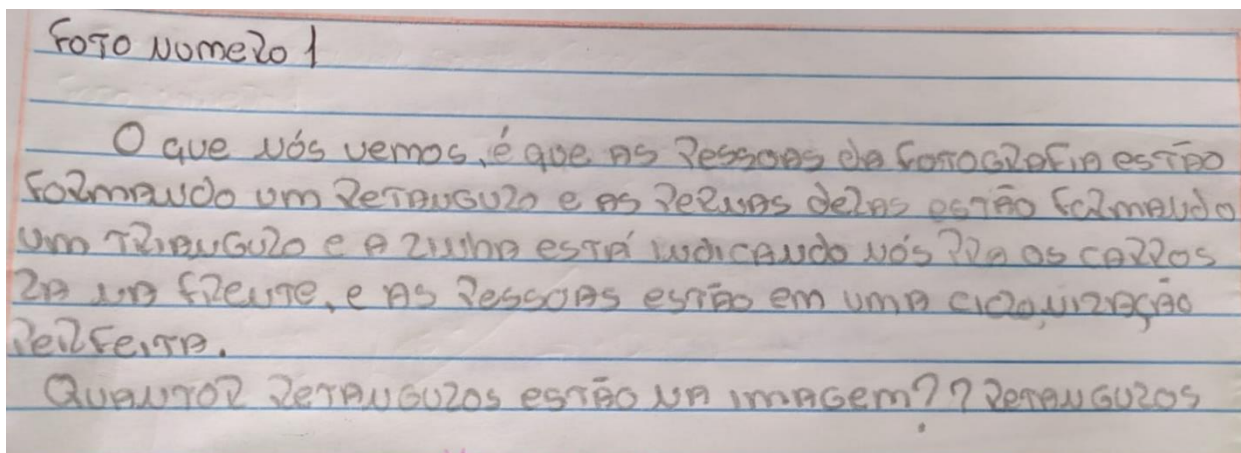 FOTO NUMERO 1
O que nós vemos, é que as pessoas da fotografia estão
formando um retangulo e as pernas delas estão formando
um triangulo e a linha está indicando nós pra os carros
la na frente, e as pessoas estão em uma
perfeita.
Quantor retangulos estão na imagem? 7 retangulos